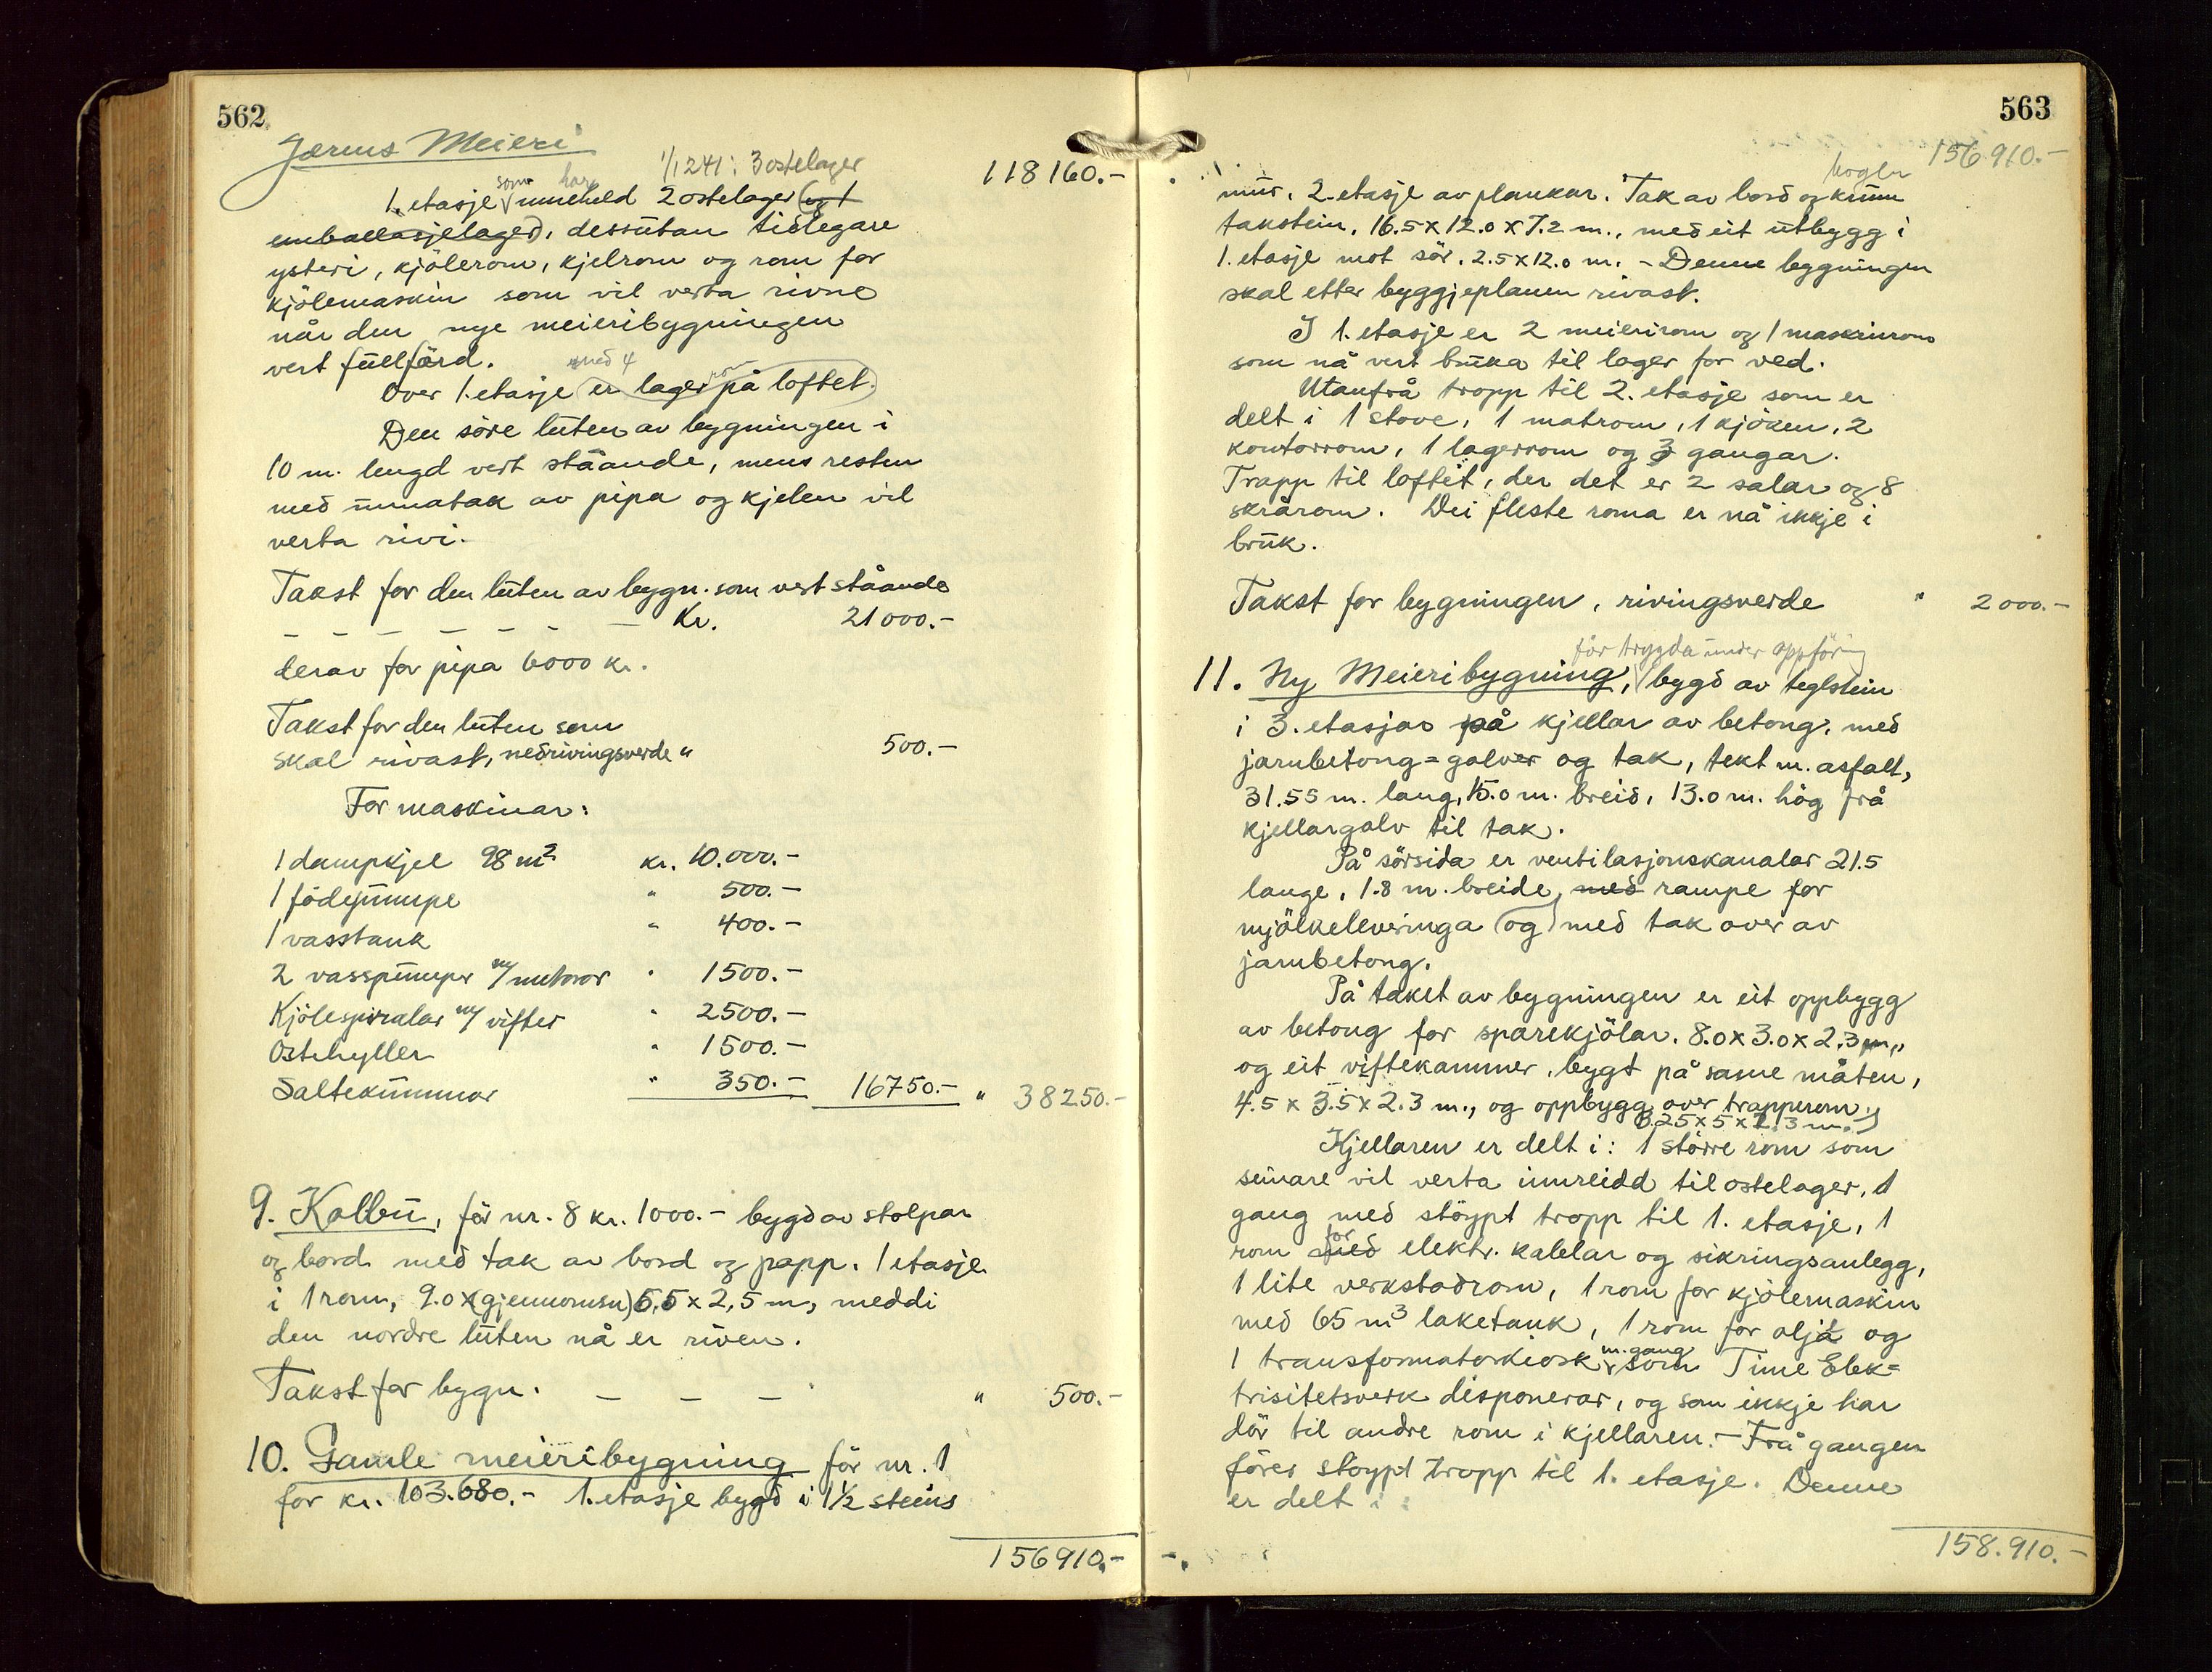 562
Jærens Meieri
1/1241: 3 ostelager
118160.-
som har
1. etasje inneheld 2 ostelager (og 1
emballasjelager), dessutan tidlegare
ysteri, kjölerom, kjelrom og rom for
kjölemaskin som vil verta rivne
når den nye meieribygningen
vert fullförd.
med 4 rom
Over 1. etasje er lager på loftet.
Den söre luten av bygningen i
10 m. lengd vert ståande, mens resten
med unnatak av pipa og kjelen vil
verta rivi.
Takst for den luten av bygn. som vert ståande
– – – – – – – Kr. 21000.-
derav for pipa 6000 kr.
Takst for den luten som
skal rivast, nedrivingsverde " 500.-
For maskinar:
1 dampkjel 98 m² kr. 10.000.-
1 födepumpe " 500.-
1 vasstank " 400.-
2 vasspumper m/ motorar " 1500.-
Kjölespiralar m/ vifter " 2500.-
Ostehyller " 1500.-
Saltekummar " 350.- 16750.- " 38250.-
9. Kolbu, för nr. 8 kr. 1000.- bygd av stolpar
og bord med tak av bord og papp. 1 etasje
i 1 rom, 9.0 x (gjennomsn) 5,5 x 2,5 m, med di
den nordre luten nå er riven.
Takst for bygn. – – – " 500.-
10. Gamle meieribygning för nr. 1
for kr. 103.680.- 1. etasje bygd i 1½ steins
156910.-
563
156910.-
mur. 2. etasje av plankar. Tak av bord og krum
takstein, 16.5 x 12.0 x 7.2 m., med eit utbygg i
1. etasje mot sör. 2.5 x 12.0 m. - Denne bygningen
skal etter byggjeplanen rivast.
I 1. etasje er 2 meierirom og 1 maskinrom
som nå vert bruka til lager for ved.
Utanfrå tropp til 2. etasje som er
delt i 1 stove, 1 matrom, 1 kjöken, 2
kontorrom, 1 lagerrom og 3 gangar.
Trapp til loftet, der det er 2 salar og 8
skrårom. Dei fleste roma er nå ikkje i
bruk.
Takst for bygningen, rivingsverde " 2000.-
för trygda under oppföring
11. Ny Meieribygning, bygd av teglstein
i 3. etasjar på kjellar av betong, med
jarnbetong=golver og tak, tekt m. asfalt,
31.55 m. lang, 15.0 m. breid, 13.0 m. hög frå
kjellargolv til tak.
På sörsida er ventilasjonskanalar 21.5
lange, 1.8 m. breide, med rampe for
mjölkeleveringa (og) med tak over av
jarnbetong.
På taket av bygningen er eit oppbygg
av betong for sparekjölar. 8.0 x 3.0 x 2.3 m.,
og eit viftekammer, bygt på same måten,
4.5 x 3.5 x 2.3 m., og oppbygg over trapperom
6.25 x 5 x 2.3 m.
Kjellaren er delt i: 1 större rom som
seinare vil verta innreidd til ostelager, 1
gang med stöypt tropp til 1. etasje, 1
for
rom med elektr. kablar og sikringsanlegg,
1 lite verkstadrom, 1 rom for kjölemaskin
med 65 m³ laketank, 1 rom for olja og
m. gang
1 transformatorkiosk som Time Elek=
trisitetsverk disponerar, og som ikkje har
dör til andre rom i kjellaren. - Frå gangen
förer stöypt tropp til 1. etasje. Denne
er delt i
158.910.-